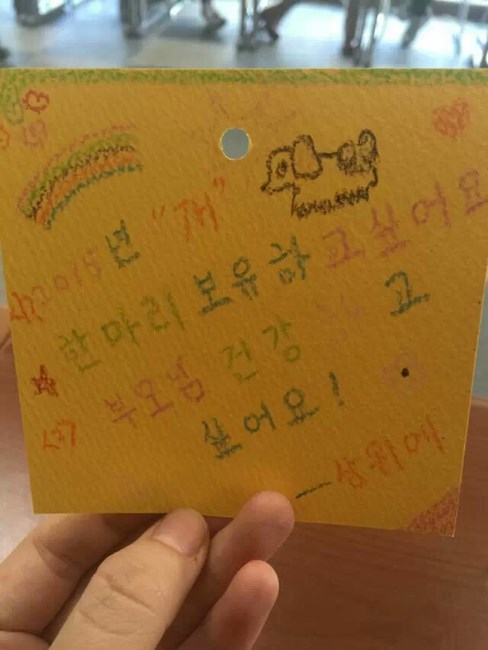 2015년 "개"
한마리 보유하고싶어요
부모님 건강하고
싶어요!
—상위에